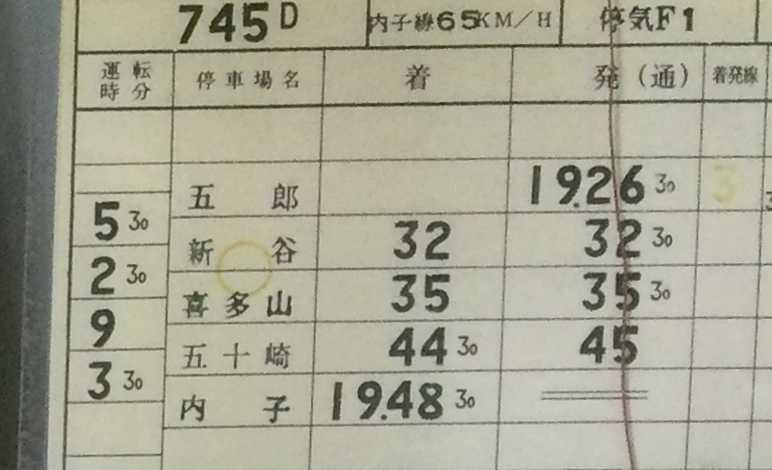 745D 内子線65KM/H 停気F1
運転時分 停車場名 着 発(通) 着発線
五郎 19.26 30 3
5 30
新谷 32 32 30
2 30
喜多山 35 35 30
9
五十崎 44 30 45
3 30
内子 19.48 30